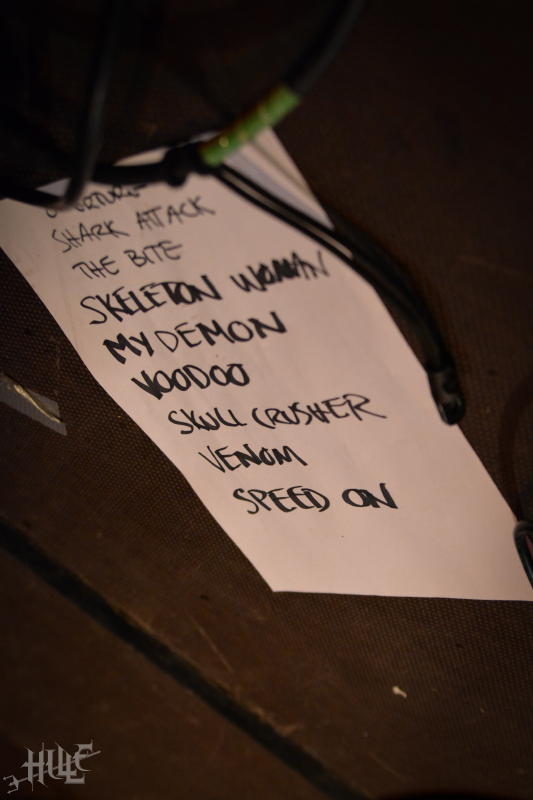 OVERTURE
SHARK ATTACK
THE BITE
SKELETON WOMAN
MY DEMON
VOODOO
SKULL CRUSHER
VENOM
SPEED ON